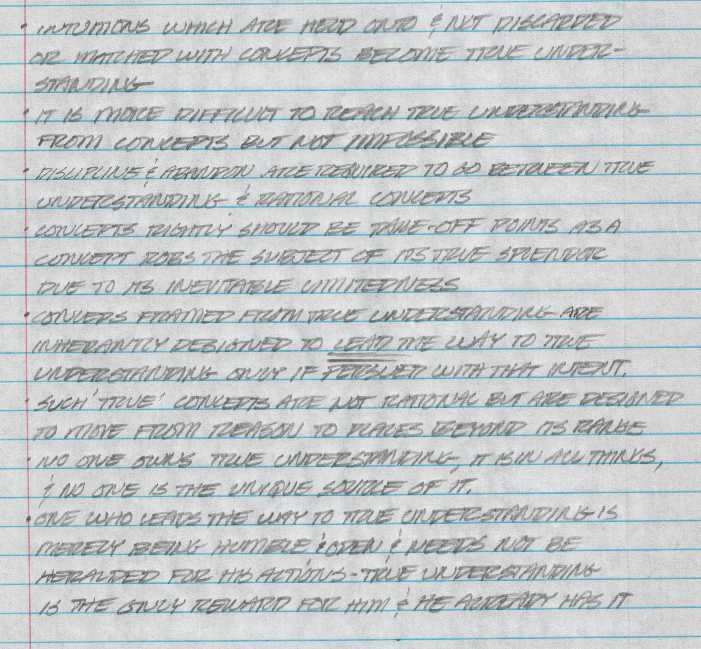 • INTUITIONS WHICH ARE HELD ONTO & NOT DISCARDED
OR MATCHED WITH CONCEPTS BECOME TRUE UNDER-
STANDING
• IT IS MORE DIFFICULT TO REACH TRUE UNDERSTANDING
FROM CONCEPTS BUT NOT IMPOSSIBLE
• DISCIPLINE & ABANDON ARE REQUIRED TO GO BETWEEN TRUE
UNDERSTANDING & RATIONAL CONCEPTS
• CONCEPTS RIGHTLY SHOULD BE TAKE-OFF POINTS AS A
CONCEPT ROBS THE SUBJECT OF ITS TRUE SPLENDOR
DUE TO ITS INEVITABLE LIMITEDNESS
• CONCEPS FRAMED FROM TRUE UNDERSTANDING ARE
INHERANTLY DESIGNED TO LEAD THE WAY TO TRUE
UNDERSTANDING ONLY IF PERSUED WITH THAT INTENT.
• SUCH 'TRUE' CONCEPTS ARE NOT RATIONAL BUT ARE DESIGNED
TO MOVE FROM REASON TO PLACES BEYOND ITS RANGE
• NO ONE OWNS TRUE UNDERSTANDING, IT IS IN ALL THINGS,
& NO ONE IS THE UNIQUE SOURCE OF IT.
• ONE WHO LEADS THE WAY TO TRUE UNDERSTANDING IS
MERELY BEING HUMBLE & OPEN & NEEDS NOT BE
HERALDED FOR HIS ACTIONS - TRUE UNDERSTANDING
IS THE ONLY REWARD FOR HIM & HE ALREADY HAS IT